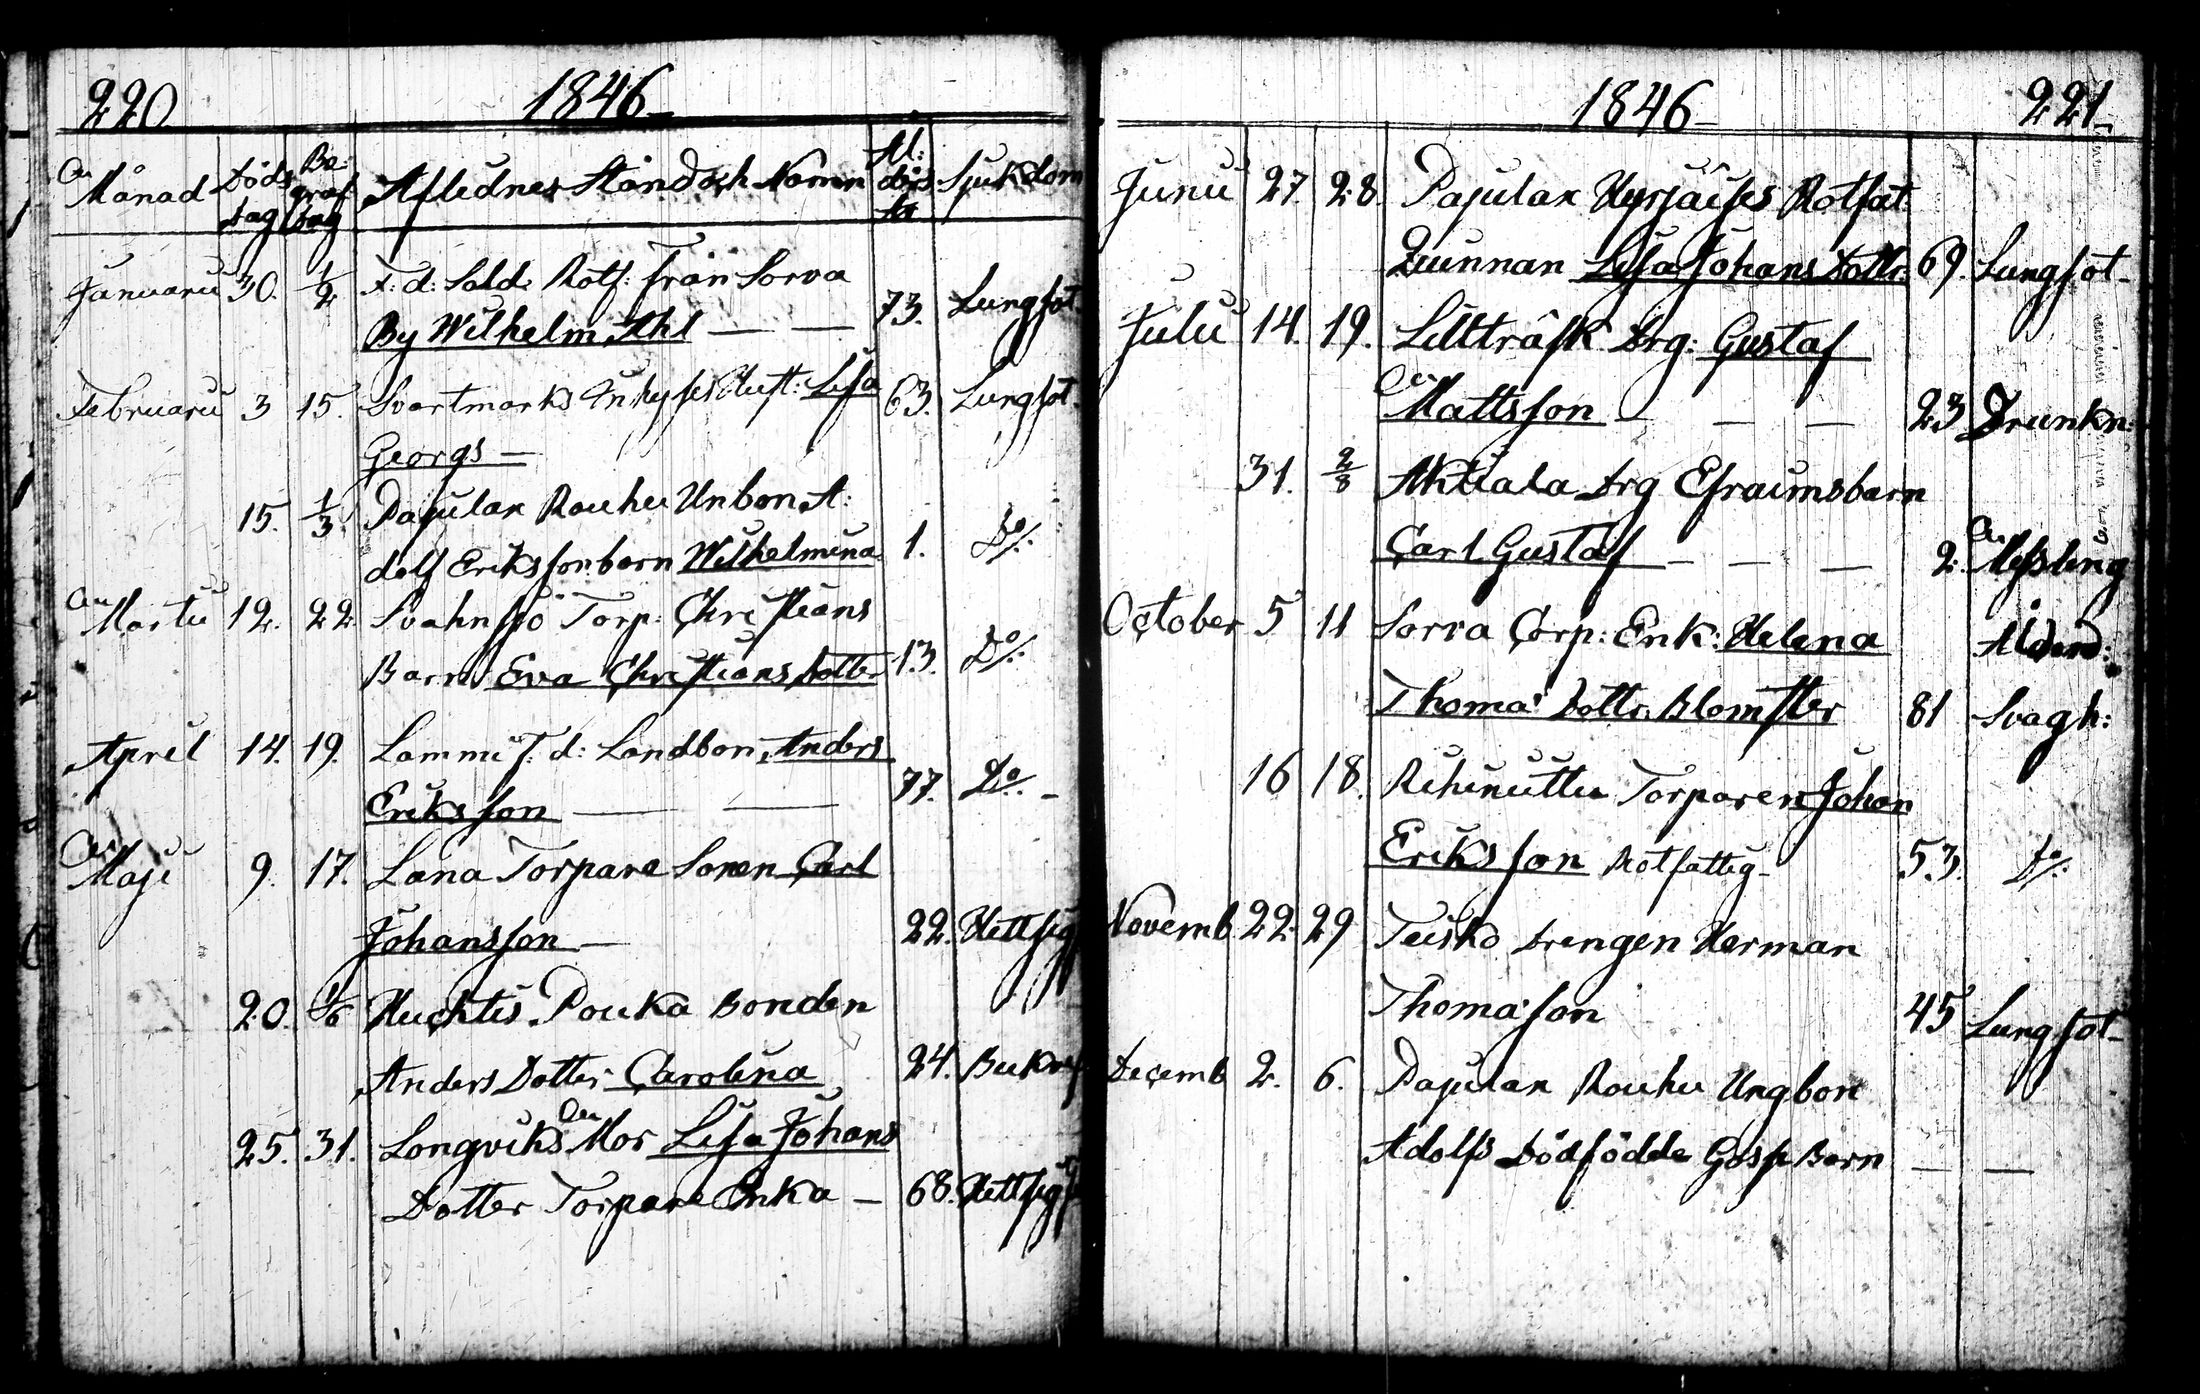 220 1846
Månad Döds Dag Begraf Dag Aflidnes Stånd och Namn Ålders År Sjukdom
Januarii 30. 1/2 F: d: Sold: Rotf: från Sorva
By Wilhelm Ahl — — 73. Lungsot.
Februarii 3 15. Svartmarks Inhyses Hust: Lisa 63. Lungsot.
Georgs —
15. 1/3. Pajulax Rouhu Unbon A:
dolf Erikssonbarn Wilhelmina 1. Do/:
Martii 12. 22 Svahnsjö Torp: Christians
Barn Eva Christians Dotter 13. Do/:
April 14. 19. Lammi F. d: Landbon Anders
Eriksson — — 77. Do/: -
Maji 9. 17. Lana Torpare Sonen Carl
Johansson — 22. Hettsig
20. 1/6 Huchtis Pouka Bonden
Anders Dotter Carolina 24. Bukref
25. 31. Longviks Mor Lisa Johans
Dotter Torpare Enka — 68. Hettsig
1846 221
Junii 27. 28. Pajulax Hyrjäises Rotfat
Quinnan Lisa Johans Dottr: 69. Lungsot-
Julii 14. 19. Lillträsk Drg: Gustaf
Mattsson — — — 23 Drunkn:
31. 2/8 Aktiala Drg Efraimsbarn
Carl Gustaf — — — 2. Messling
October 5 11 Sorva Corp: Enk: Helena Ålderd:
Thoma Dottr. Blomster 81 Svagh:
16 18. Rihiniittu Torparen Johan
Eriksson Rotfattig- 53. Do/:
Novemb 22. 29 Teisko Drengen Herman
Thomasson 45 Lungsot-
Decemb 2. 6. Pajulax Rouhu Ungbon
Adolfs Dödfödde Gosse Barn — —